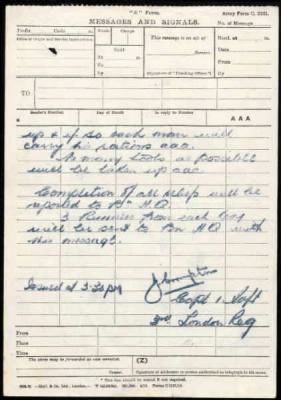 "A" Form.
Army Form C. 2121.
MESSAGES AND SIGNALS.
No. of Message
Prefix Code m.
Words Charge
This message is on a/c of
Recd. at m.
Sent
Service.
Date
From
At m.
To
By
(Signature of "Franking Officer")
By
TO
Sender's Number
Day of Month
In reply to Number
AAA
up & if so each man will
carry his rations aaa.
As many tools as possible
will be taken up aaa
Completion of all reliefs will be
reported to Bn H.Q.
3 Runners from each Coy
will be sent to Bn HQ with
this message.
Issued at 3.30 PM
Capt & Adjt
3rd London Reg
From
Place
Time
The above may be forwarded as now corrected.
(Z)
Censor.
Signature of Addressor or person authorised to telegraph in his name.
* This line should be erased if not required.